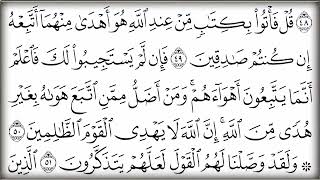 ٤٨ قُلْ فَأْتُوا۟ بِكِتَٰبٍ مِّنْ عِندِ ٱللَّهِ هُوَ أَهْدَىٰ مِنْهُمَآ أَتَّبِعْهُ
إِن كُنتُمْ صَٰدِقِينَ ٤٩ فَإِن لَّمْ يَسْتَجِيبُوا۟ لَكَ فَٱعْلَمْ
أَنَّمَا يَتَّبِعُونَ أَهْوَآءَهُمْ ۚ وَمَنْ أَضَلُّ مِمَّنِ ٱتَّبَعَ هَوَىٰهُ بِغَيْرِ
هُدًى مِّنَ ٱللَّهِ ۚ إِنَّ ٱللَّهَ لَا يَهْدِى ٱلْقَوْمَ ٱلظَّٰلِمِينَ ٥٠
۞ وَلَقَدْ وَصَّلْنَا لَهُمُ ٱلْقَوْلَ لَعَلَّهُمْ يَتَذَكَّرُونَ ٥١ ٱلَّذِينَ